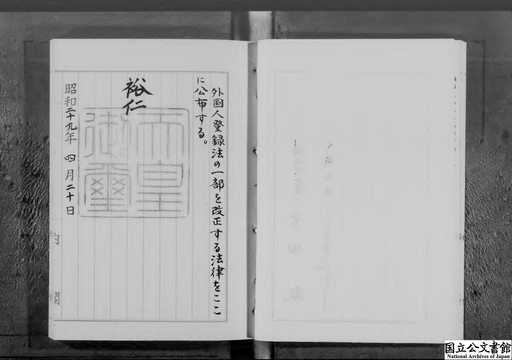 外国人登録法の一部を改正する法律をここ
に公布する。
裕仁
天皇
御璽
昭和二十九年 四月二十日
国立公文書館
National Archives of Japan